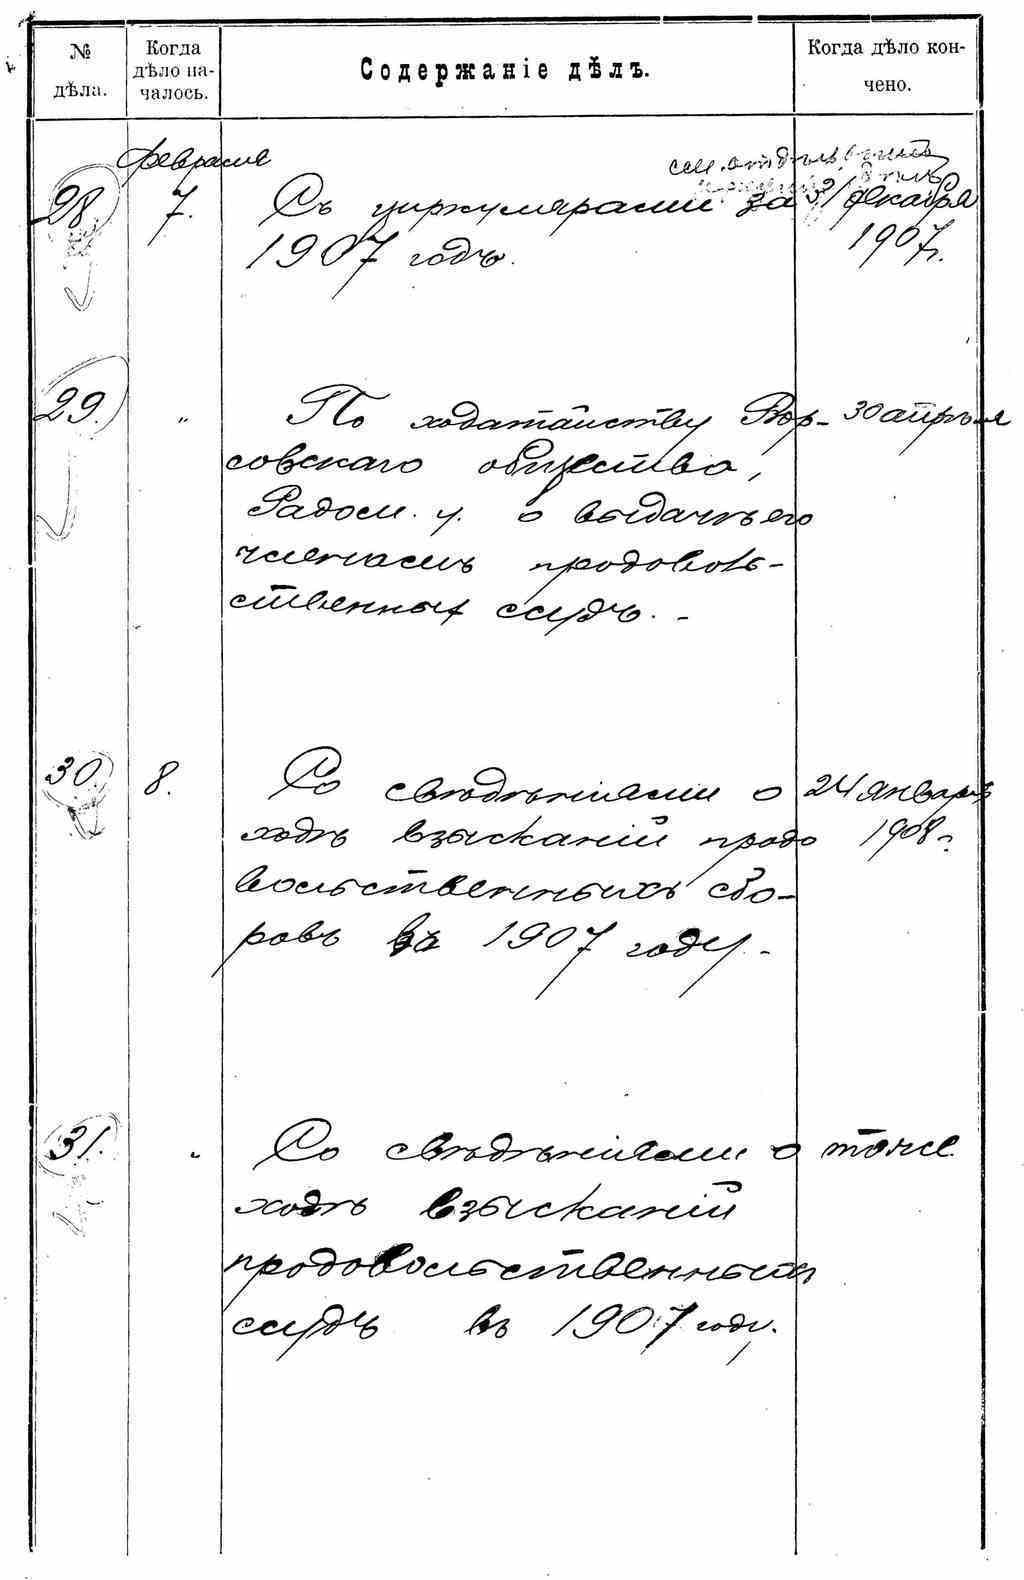 № дѣла.
Когда дѣло на-
чалось.
Содержаніе дѣлъ.
Когда дѣло кон-
чено.
Февраля
28. 7. Съ циркулярами за 31 декабря
1907 годъ. 1907 г.
29. " По ходатайству Вор- 30 апрѣля
совскаго общества,
Радом. у. о выдачѣ его
членамъ продоволь-
ственных ссудъ. -
30. 8. Со свѣдѣніями о 24 января
ходѣ взысканій продо 1908 г.
вольственныхъ сбо-
ровъ въ 1907 году. -
31. " Со свѣдѣніями о тоже
ходѣ взысканій
продовольственныхъ
ссудъ въ 1907 году.